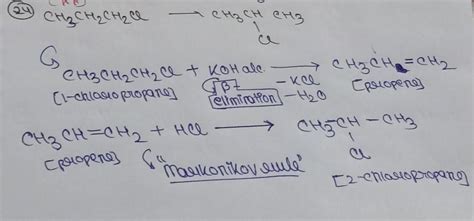 24 CH3CH2CH2Cl → CH3CH CH3
Cl
CH3CH2CH2Cl + KOH alc → CH3CH=CH2
[1-chloropropane] β elimination -KCl -H2O [propene]
CH3CH=CH2 + HCl → CH3-CH-CH3
[propene] "Markonikov rule" Cl
[2-chloropropane]